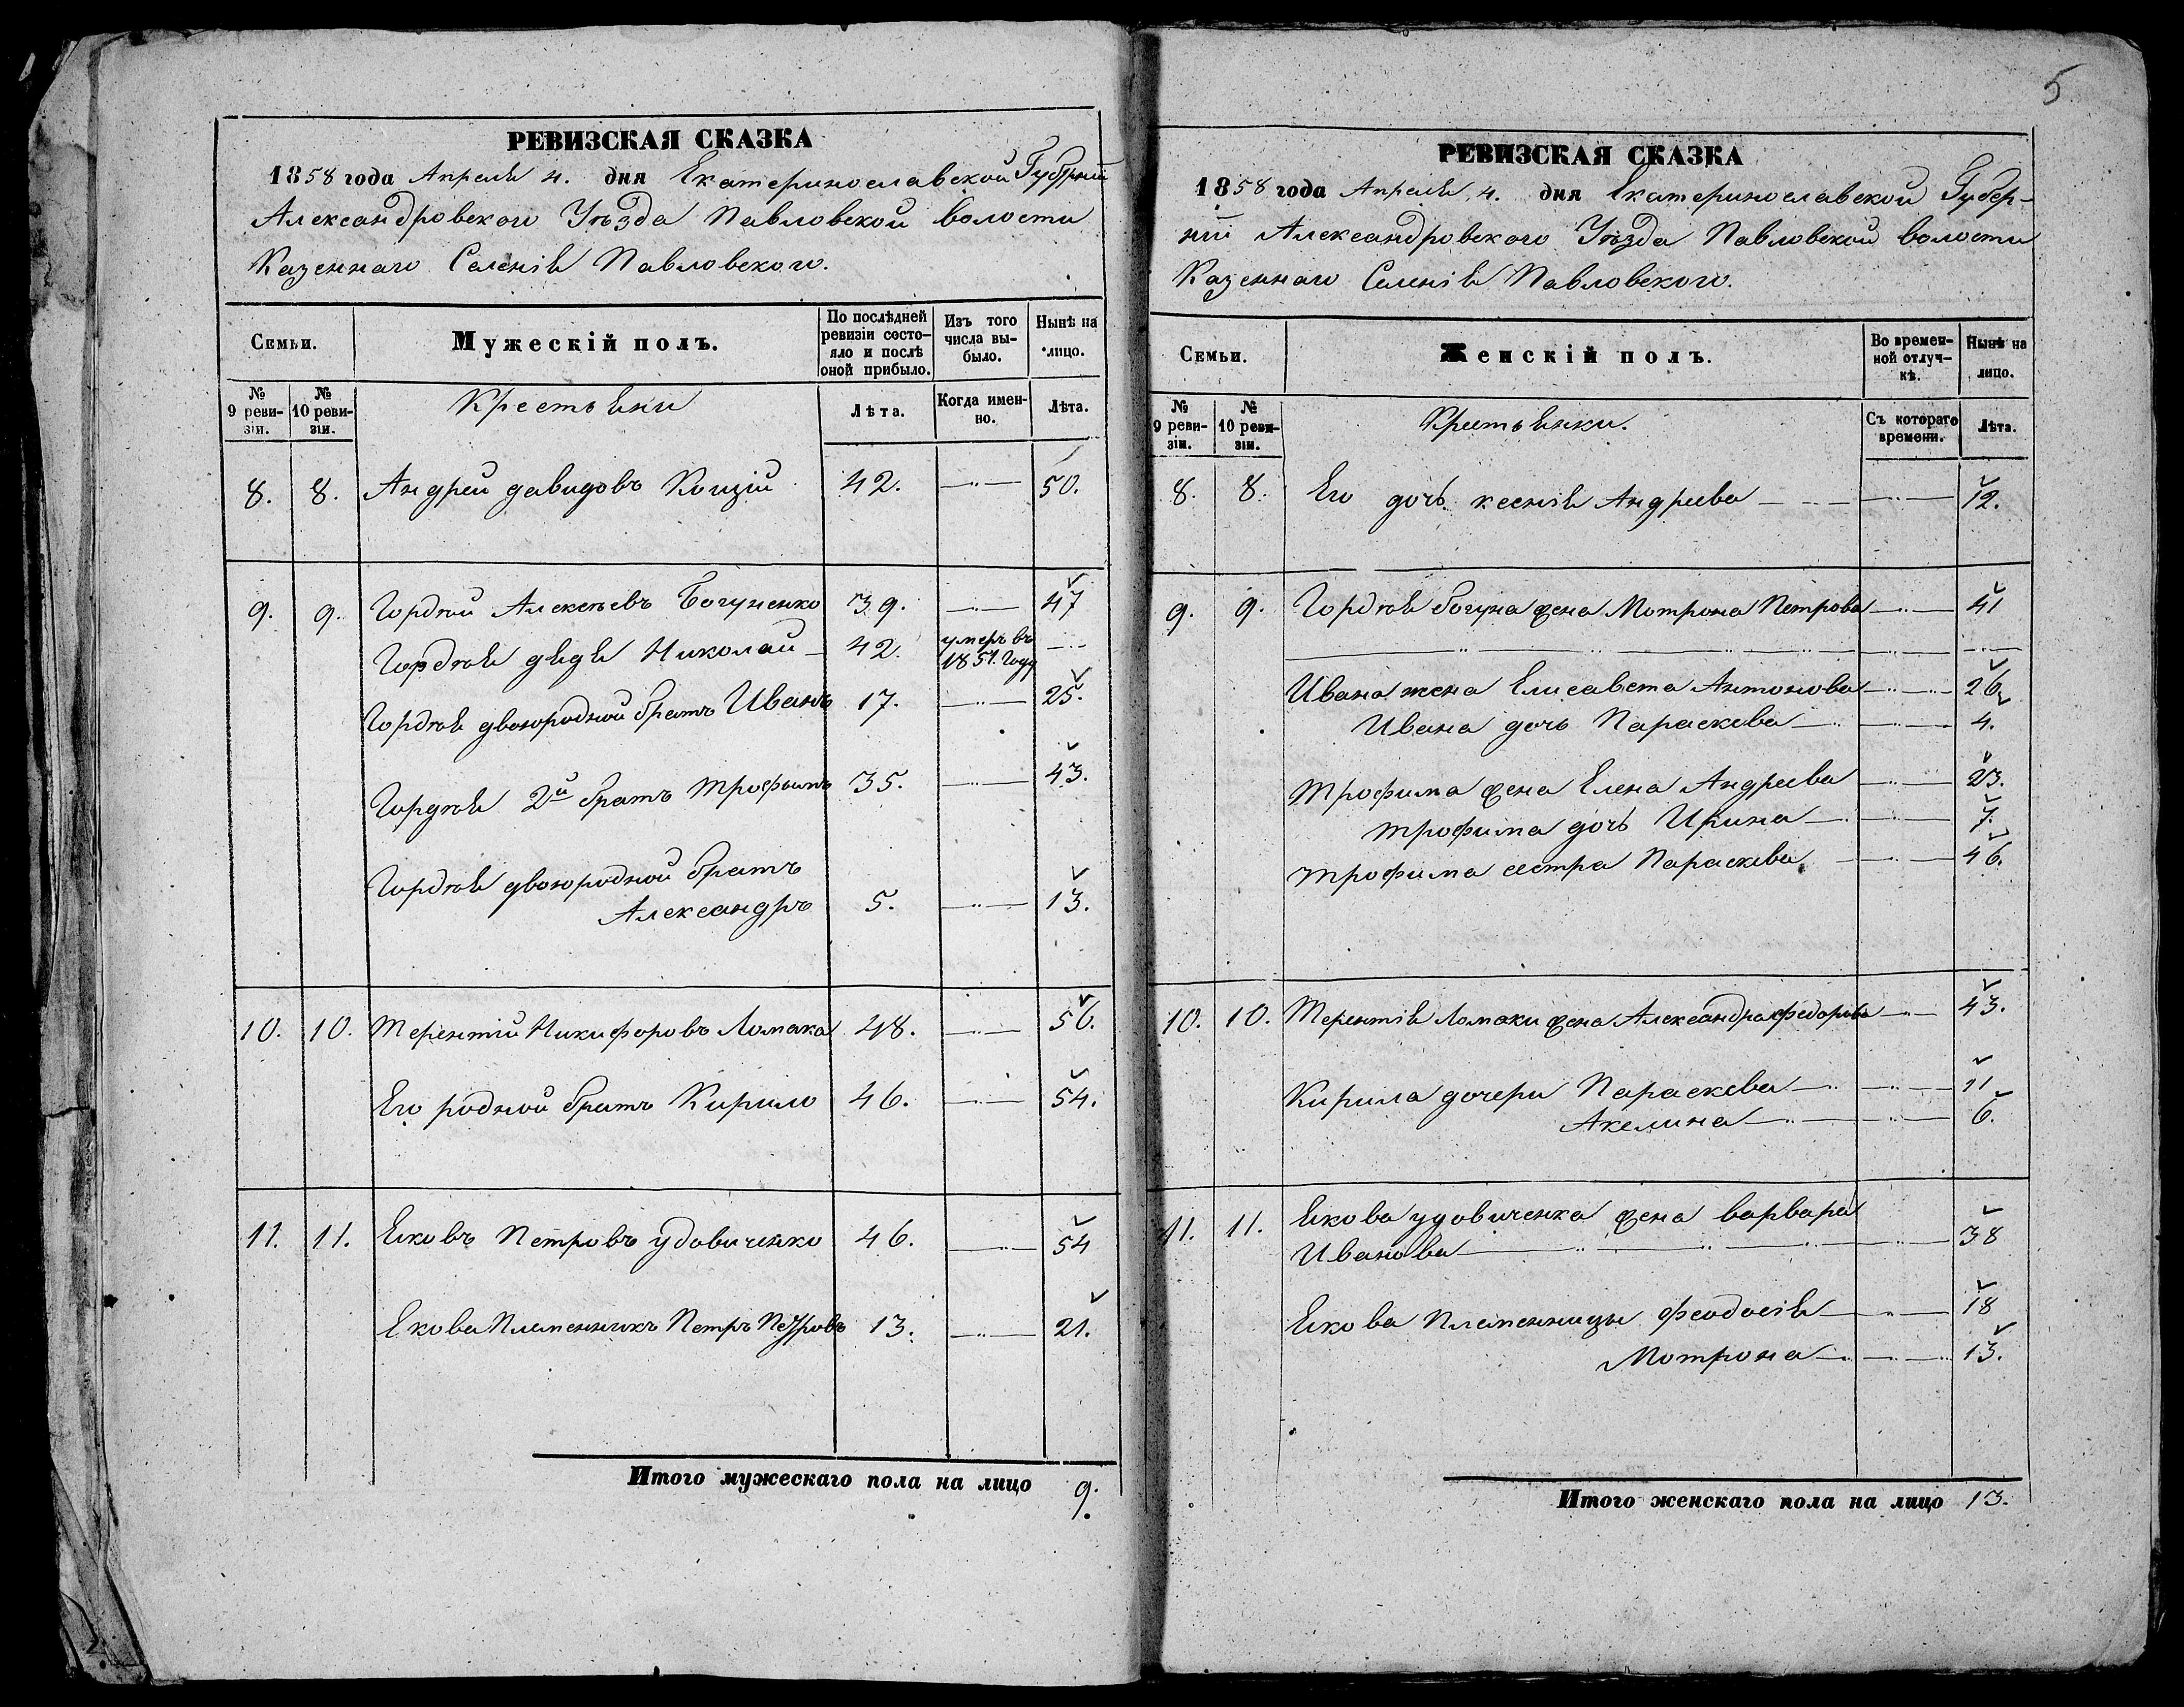 5
РЕВИЗСКАЯ СКАЗКА
1858 года Апреля 4. дня Екатеринославской Губерніи
Александровского Уѣзда Павловской волости
Казеннаго Селенія Павловского.
Семьи. Мужескій полъ. По послѣдней ревизіи состояло и послѣ оной прибыло. Изъ того числа выбыло. Нынѣ на лицо.
№ 9 ревизіи. № 10 ревизіи. Крестьяни Лѣта. Когда именно. Лѣта.
8. 8. Андрей давидовъ 42. 50.
9. 9. Гордѣй Алексѣевъ Богуненко 39. 47
Гордѣя дядя Николай 42. умеръ въ 1851. Году
Гордѣя двоюродной братъ Иванъ 17. 25.
Гордѣя 2й братъ трофимъ 35. 43.
Гордѣя двоюродной братъ
Александръ 5. 13.
10. 10. Терентій Никифоровъ Ломака 48. 56.
Его родной братъ Кирило 46. 54.
11. 11. Яковъ Петровъ удовиченко 46. 54
Якова Племенникъ Петръ Петровъ 13. 21.
Итого мужескаго пола на лицо 9.
РЕВИЗСКАЯ СКАЗКА
1858 года Апреля 4. дня Екатеринославской Губер-
ніи Александровского Уѣзда Павловской волости
Казеннаго Селенія Павловского.
Семьи. Женскій полъ. Во временной отлучкѣ. Нынѣ на лицо.
№ 9 ревизіи. № 10 ревизіи. Крестьянки. Съ котораго времени. Лѣта.
8. 8. Его дочь ксенія Андреева 12.
9. 9. Гордѣя богуна жена Мотрона Петрова 41
Ивана жена Елисавета Антонова 26
Ивана дочь Параскева 4.
трофима жена Елена Андреева 23.
трофима дочь Ирина 7.
трофима сестра Параскева 46.
10. 10. Терентія Ломаки жена Александра федорова 43.
Кирила дочери Параскева 11
Акелина 6.
11. 11. Якова удовиченка жена варвара
Иванова 38
Якова Племенницы феодосія 18
Мотрона 13.
Итого женскаго пола на лицо 13.